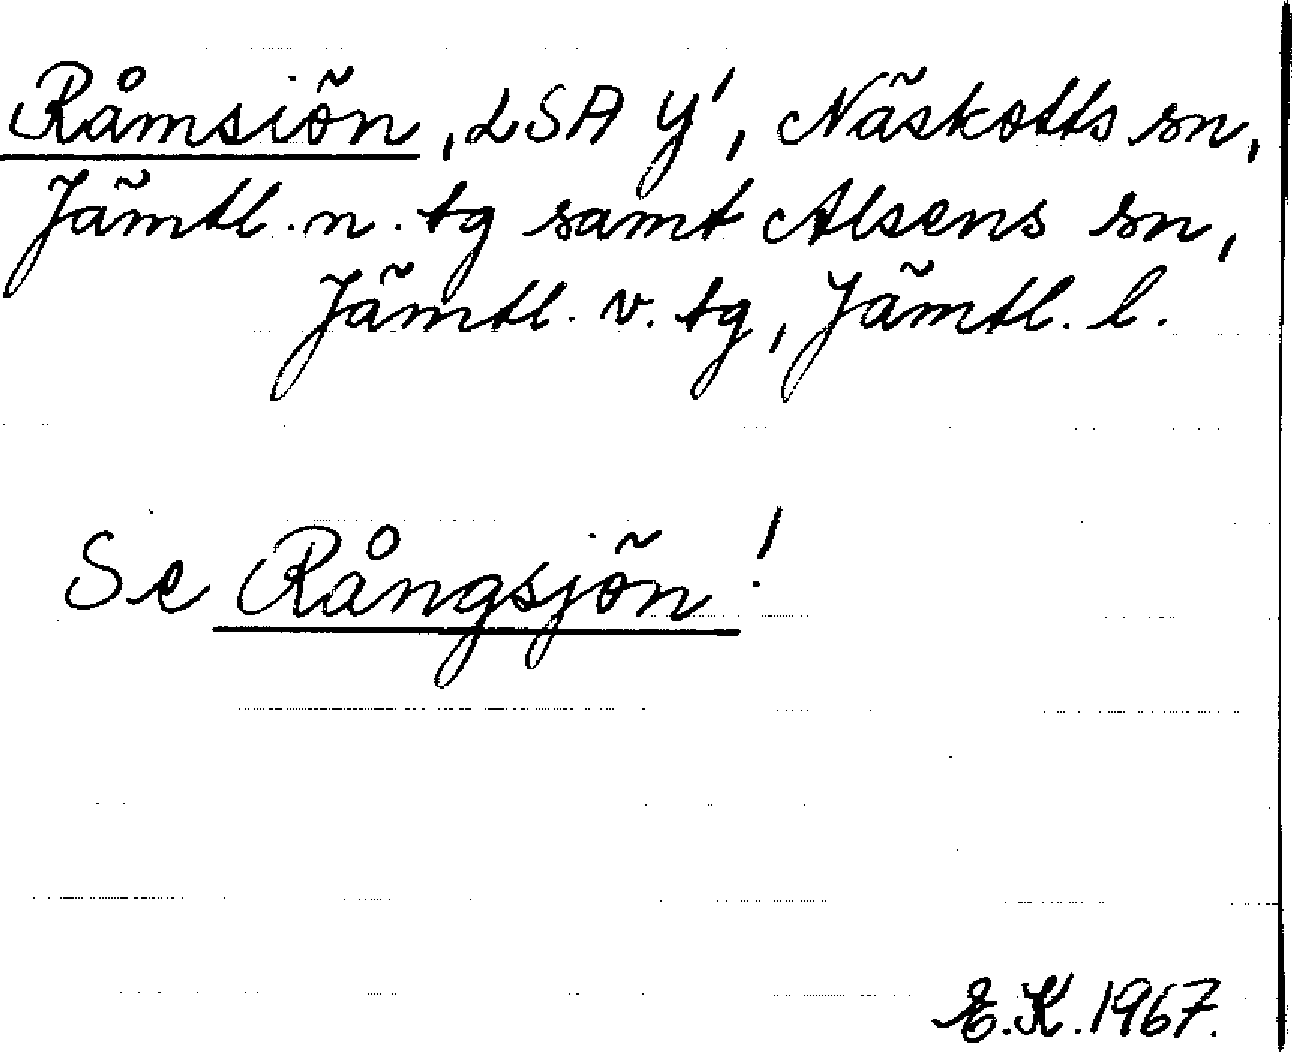 Råmsiön, LSA Y', Näskotts sn,
Jämtl. n. tg samt Alsens sn,
Jämtl. v. tg, Jämtl. l.
Se Rångsjön!
E.K. 1967.